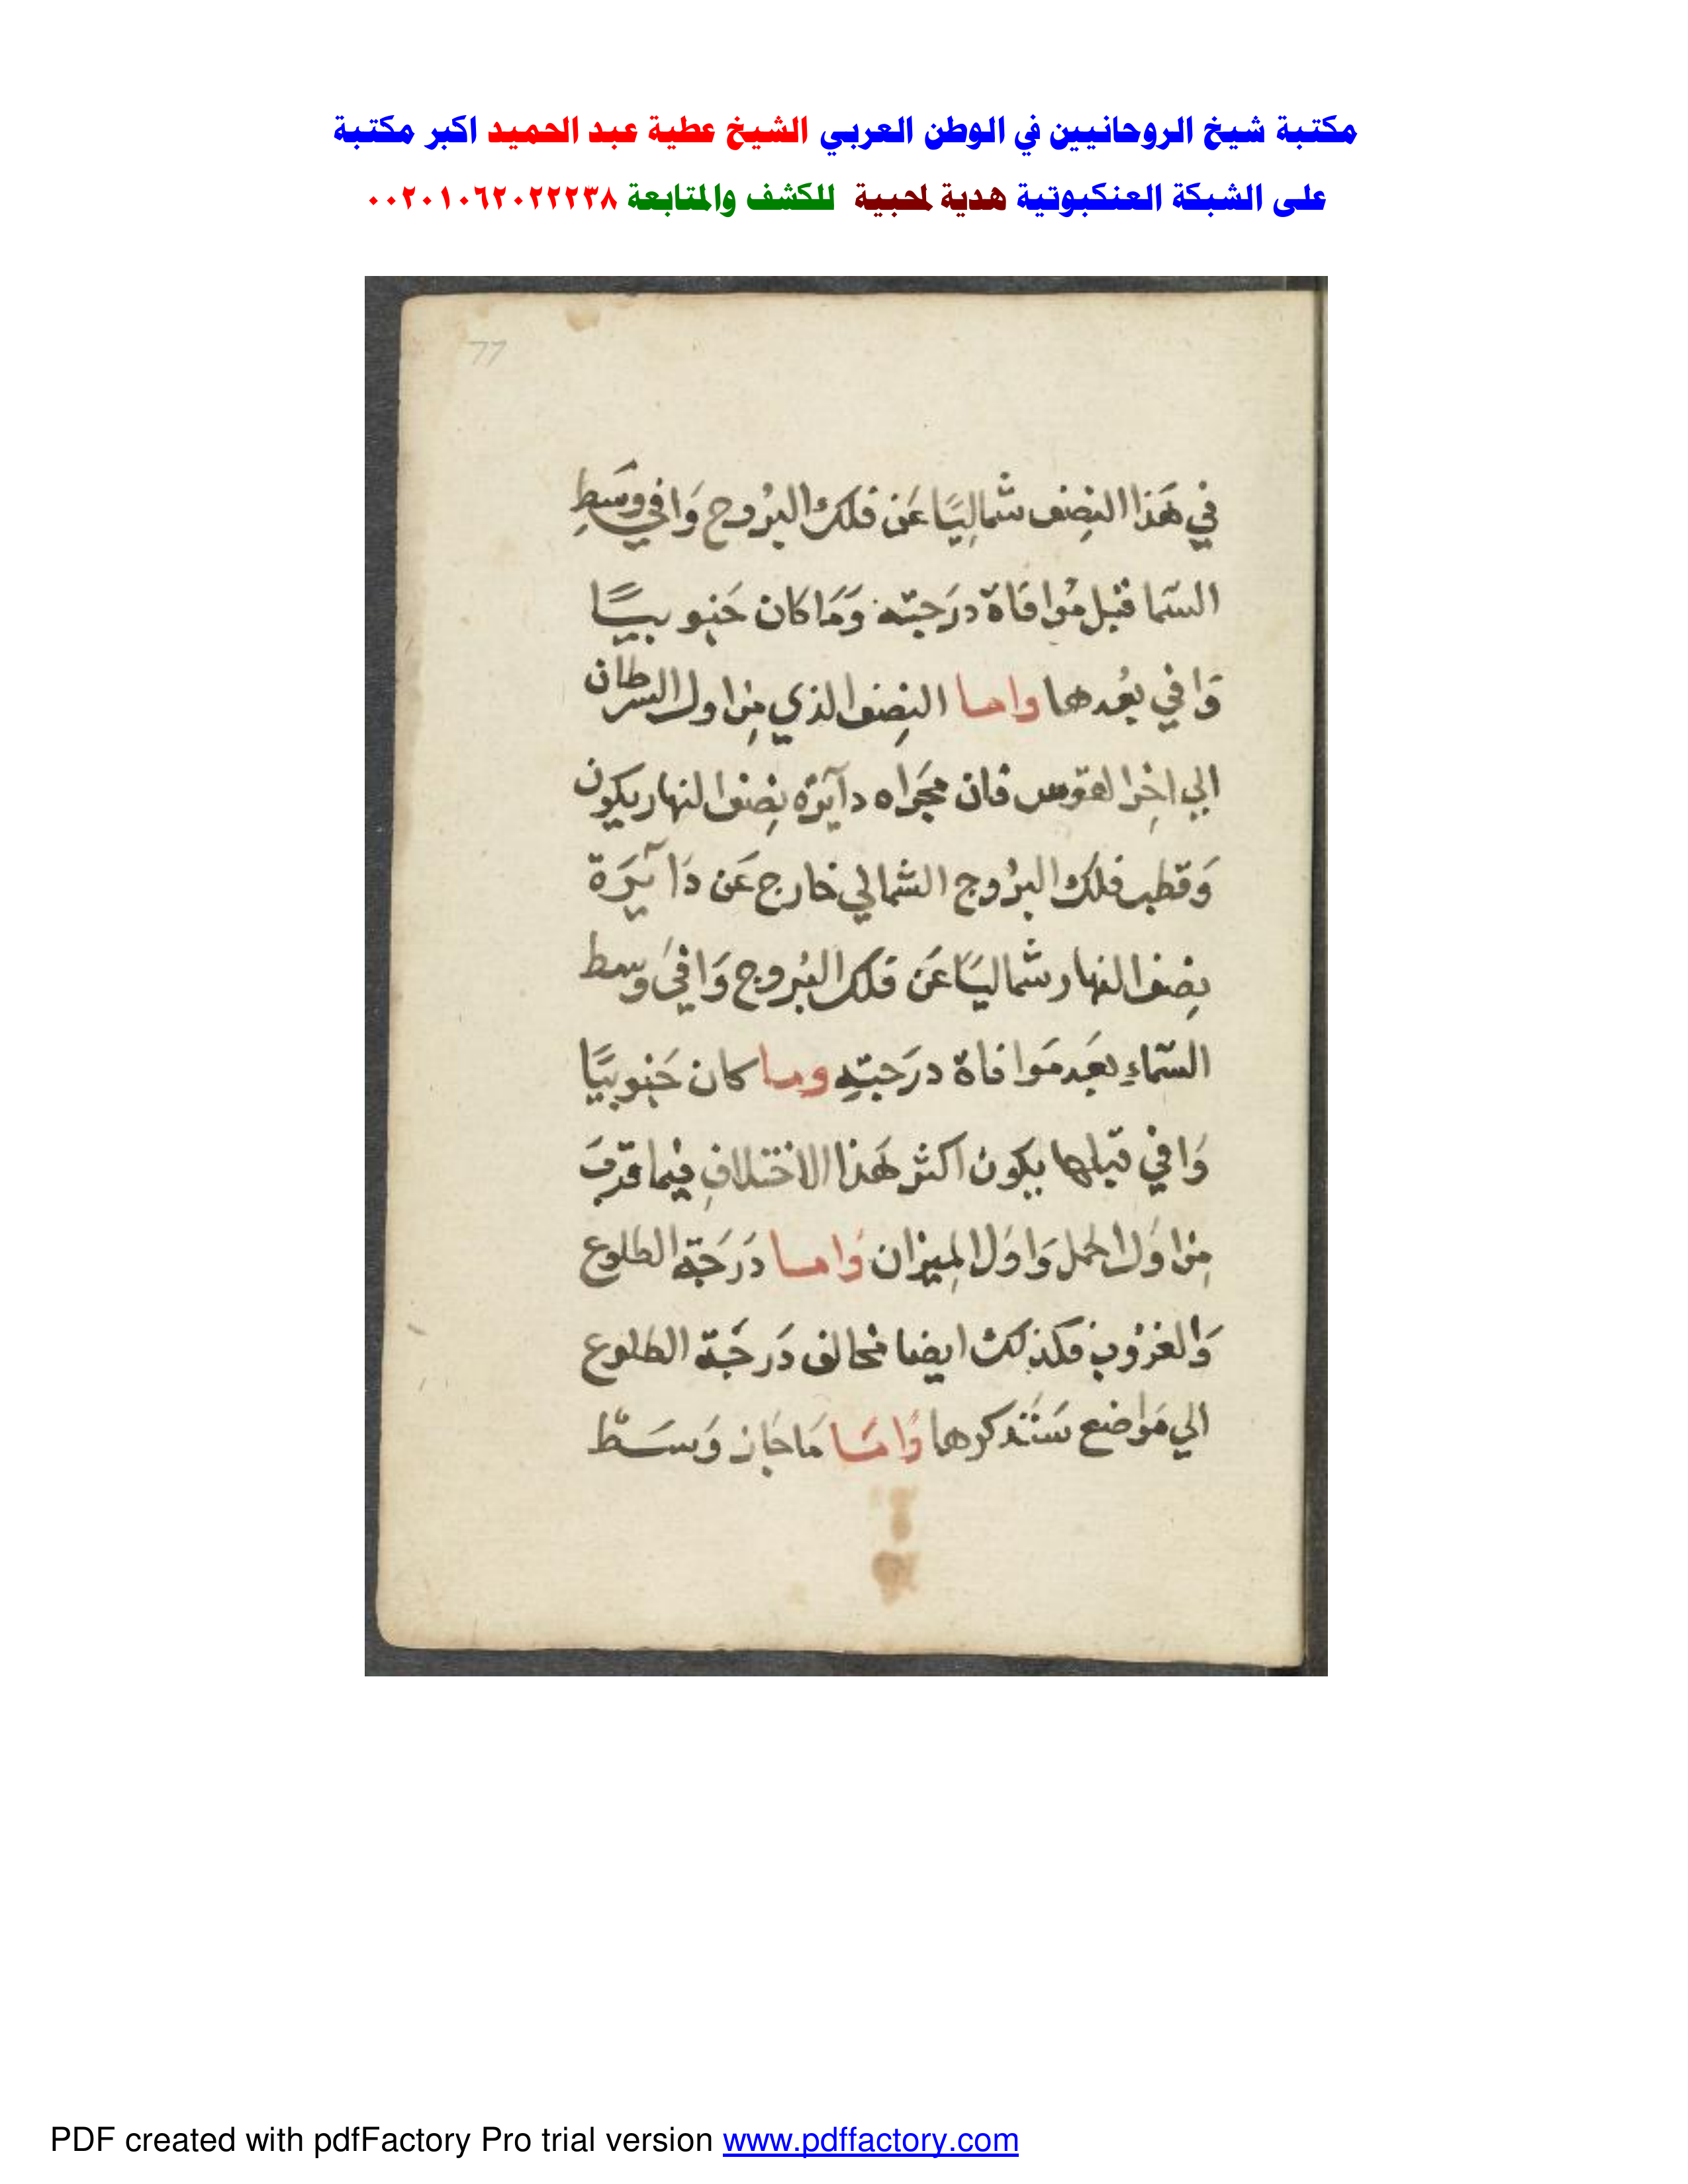 مكتبة شيخ الروحانيين في الوطن العربي الشيخ عطية عبد الحميد اكبر مكتبة
على الشبكة العنكبوتية هدية لمحبية للكشف والمتابعة ٠٠٢٠١٠٦٢٠٢٢٢٣٨
77
في هَذا النِصِف شماليًا عَن فلك البُروج وَافي وسَطِ
السَما قبل مُوافاة درَجته وَمَا كان جَنوبيًا
وَافي بعْدها واما النِصِف الذي مِن اول السرطان
الي اخِر القوس فان مجَراه دآئرة نِصِف النهار يكون
وَقطب فلك البرُوج الشمالي خارج عَن دَآئِرَة
نِصِف النهار شماليَا عَن فلك البُروج وَافيَ وسط
السَماءِ بعَد مَوافاة درَجتِهِ وما كان جَنوبيًا
وَافي قبلها يكون اكثر هَذا الاختلافِ فيما قرَبَ
مِن اوَل الحمل وَاوَل المِيزان وَاما دَرَجَة الطلوع
وَالغرُوب فكذلك ايضا تخالف دَرجَة الطلوع
الي مَواضع سَنَذكرها وَامَا مَا جَاز وَسَط
PDF created with pdfFactory Pro trial version www.pdffactory.com